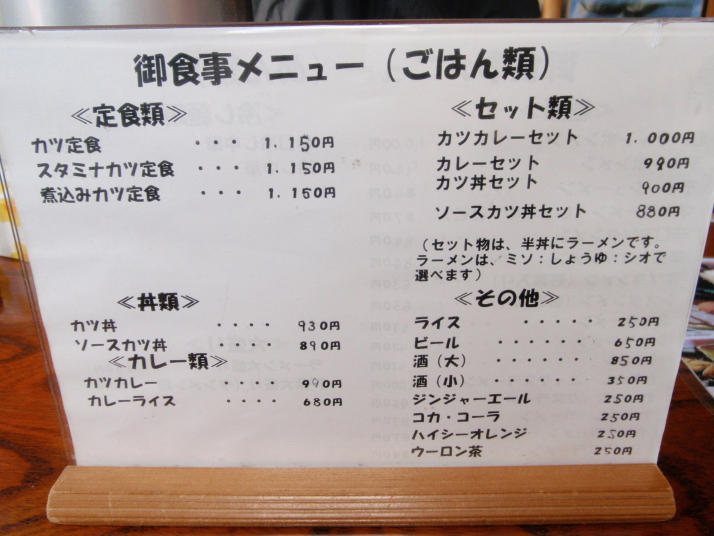 御食事メニュー（ごはん類）
≪定食類≫
カツ定食 ・・・ 1.150円
スタミナカツ定食 ・・・ 1.150円
煮込みカツ定食 ・・・ 1.150円
≪丼類≫
カツ丼 ・・・・ 930円
ソースカツ丼 ・・・・ 890円
≪カレー類≫
カツカレー ・・・・ 990円
カレーライス ・・・・ 680円
≪セット類≫
カツカレーセット 1.000円
カレーセット 990円
カツ丼セット 900円
ソースカツ丼セット 880円
（セット物は、半丼にラーメンです。
ラーメンは、ミソ：しょうゆ：シオで
選べます）
≪その他≫
ライス ・・・・・ 250円
ビール ・・・・・・ 650円
酒（大） ・・・・・・ 850円
酒（小） ・・・・・・ 350円
ジンジャーエール 250円
コカ・コーラ 250円
ハイシーオレンジ 250円
ウーロン茶 250円